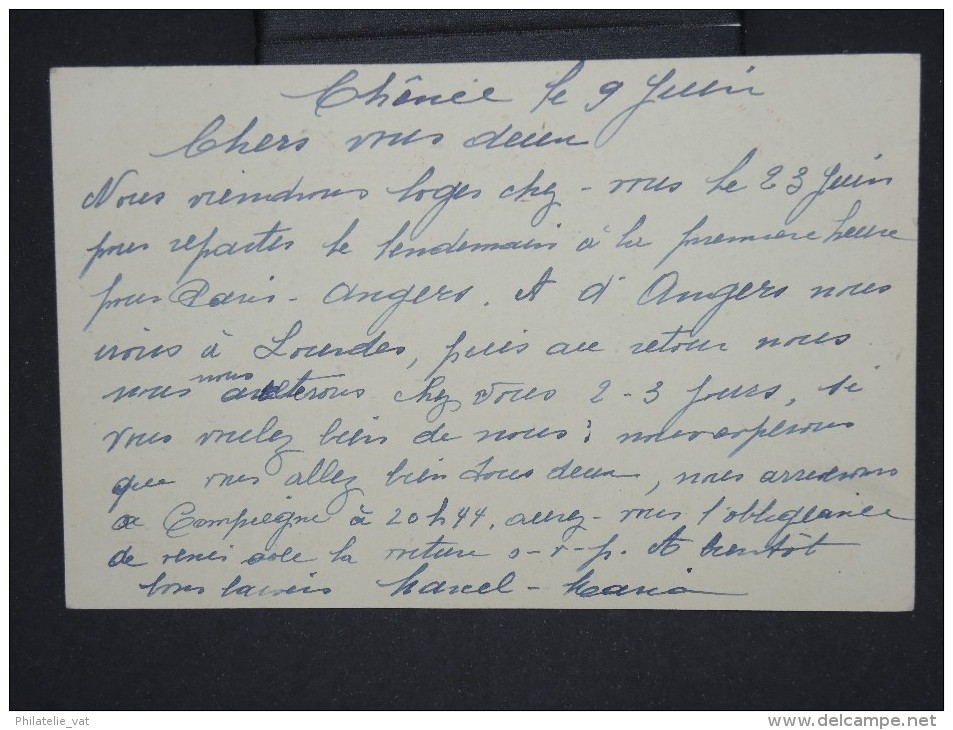 le 9 Juin
Chers vous deux
Nous viendrons loger chez-vous le 23 Juin
pour repartir le lendemain à la première heure
pour Paris-Angers. Et d'Angers nous
irons à Lourdes, puis au retour nous
nous arrêterons chez vous 2-3 jours, si
vous voulez bien de nous; nous espérons
que vous allez bien tous deux, nous arriverons
a Compiègne à 20h44, aurez-vous l'obligeance
de venir avec la voiture s-v-p. A bientôt
bons baisers Marcel-Maria
Philatelie_vat
www.delcampe.net